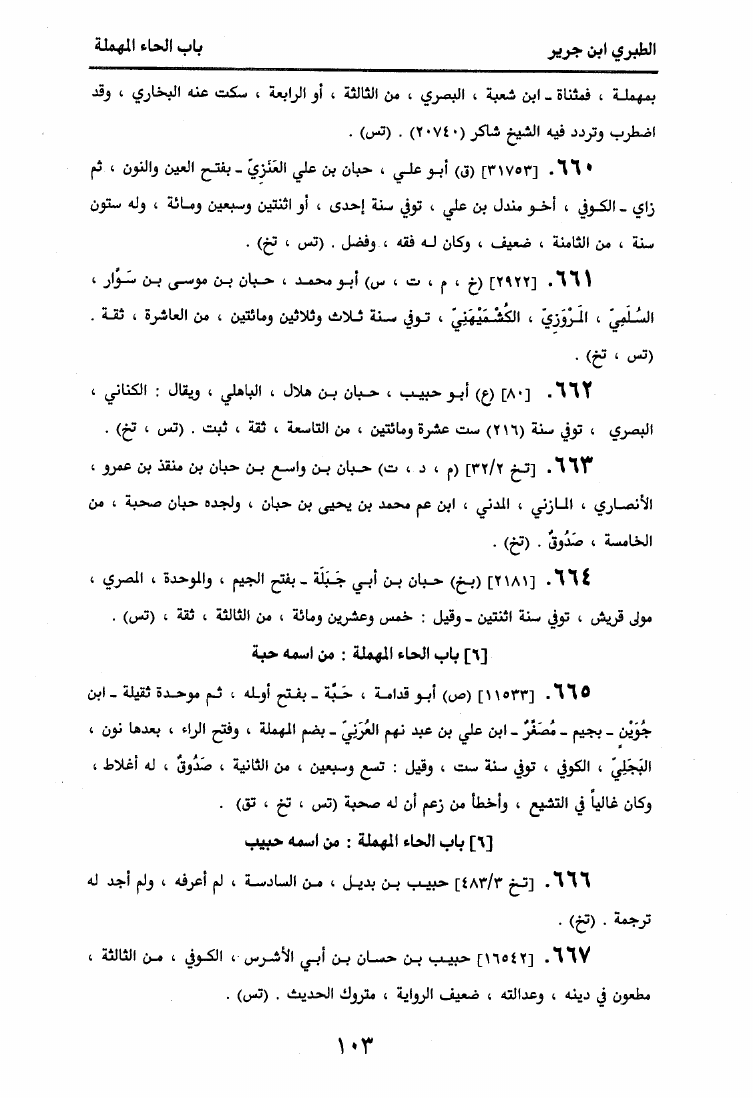 الطبري ابن جرير
باب الحاء المهملة
بمهملة ، فمثناة ـ ابن شعبة ، البصري ، من الثالثة ، أو الرابعة ، سكت عنه البخاري ، وقد
اضطرب وتردد فيه الشيخ شاكر (٢٠٧٤٠) . (تس) .
٦٦٠. [٣١٧٥٣] (ق) أبو علي ، حبان بن علي العَنَزِيّ ـ بفتح العين والنون ، ثم
زاي ـ الكوفي ، أخو مندل بن علي ، توفي سنة إحدى ، أو اثنتين وسبعين ومائة ، وله ستون
سنة ، من الثامنة ، ضعيف ، وكان له فقه ، وفضل . (تس ، تخ) .
٦٦١. [٢٩٢٢] (خ ، م ، ت ، س) أبو محمد ، حبان بن موسى بن سَوَّار ،
السُلَمِيّ ، المَرْوَزِيّ ، الكُشْمَيْهَنِيّ ، توفي سنة ثلاث وثلاثين ومائتين ، من العاشرة ، ثقة .
(تس ، تخ) .
٦٦٢. [٨٠] (ع) أبو حبيب ، حبان بن هلال ، الباهلي ، ويقال : الكناني ،
البصري ، توفي سنة (٢١٦) ست عشرة ومائتين ، من التاسعة ، ثقة ، ثبت . (تس ، تخ) .
٦٦٣. [تخ ٣٢/٢] (م ، د ، ت) حبان بن واسع بن حبان بن منقذ بن عمرو ،
الأنصاري ، المازني ، المدني ، ابن عم محمد بن يحيى بن حبان ، ولجده حبان صحبة ، من
الخامسة ، صَدُوقٌ . (تخ) .
٦٦٤. [٢١٨١] (بخ) حبان بن أبي جَبَلَة ـ بفتح الجيم ، والموحدة ، المصري ،
مولى قريش ، توفي سنة اثنتين ـ وقيل : خمس وعشرين ومائة ، من الثالثة ، ثقة ، (تس) .
[٦] باب الحاء المهملة : من اسمه حبة
٦٦٥. [١١٥٣٣] (ص) أبو قدامة ، حَبَّة ـ بفتح أوله ، ثم موحدة ثقيلة ـ ابن
جُوَيْنٍ ـ بجيم ـ مُصَغَّرٌ ـ ابن علي بن عبد نهم العُرَنِيّ ـ بضم المهملة ، وفتح الراء ، بعدها نون ،
البَجَلِيّ ، الكوفي ، توفي سنة ست ، وقيل : تسع وسبعين ، من الثانية ، صَدُوقٌ ، له أغلاط ،
وكان غالياً في التشيع ، وأخطأ من زعم أن له صحبة (تس ، تخ ، تق) .
[٦] باب الحاء المهملة : من اسمه حبيب
٦٦٦. [تخ ٤٨٣/٣] حبيب بن بديل ، من السادسة ، لم أعرفه ، ولم أجد له
ترجمة . (تخ) .
٦٦٧. [١٦٥٤٢] حبيب بن حسان بن أبي الأشرس ، الكوفي ، من الثالثة ،
مطعون في دينه ، وعدالته ، ضعيف الرواية ، متروك الحديث . (تس) .
١٠٣